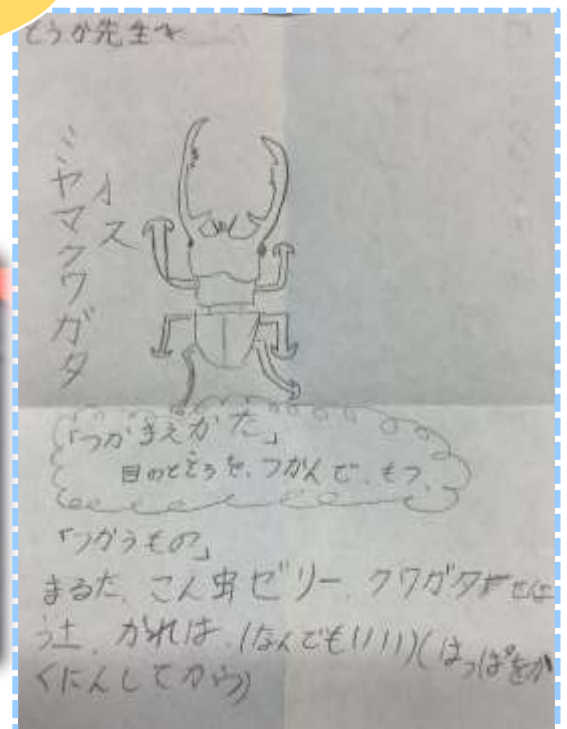 とうが先生へ
ミヤマクワガタ
オス
「つかまえかた」
目のところを、つかんで、もつ、
「つかうもの」
まるた、こん虫ゼリー、クワガタ
う土、かれは、(なんでもいい)(はっぱをか
くにんしてから)